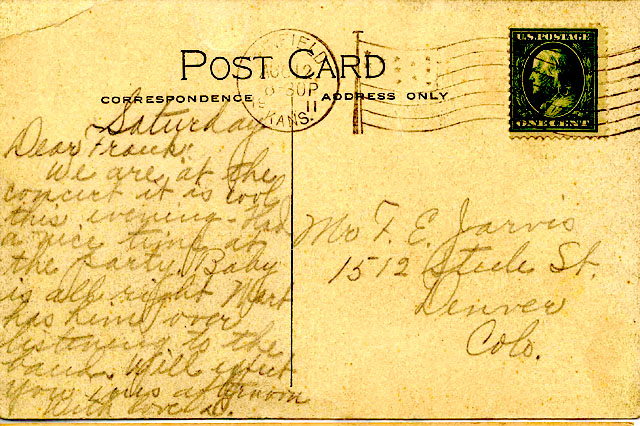 POST CARD
CORRESPONDENCE
ADDRESS ONLY
FIELD
AUG 12
8-30P
19 11
KANS.
U.S. POSTAGE
ONE CENT
Saturday
Dear Frank:
We are at the
concert it is cool
this evening. Had
a nice time at
the party. Baby
is all right Mart
has him over
listning to the
band. Will expect
you afternoon
With love
Mr F. E. Jarvis
1512 Steele St.
Denver
Colo.